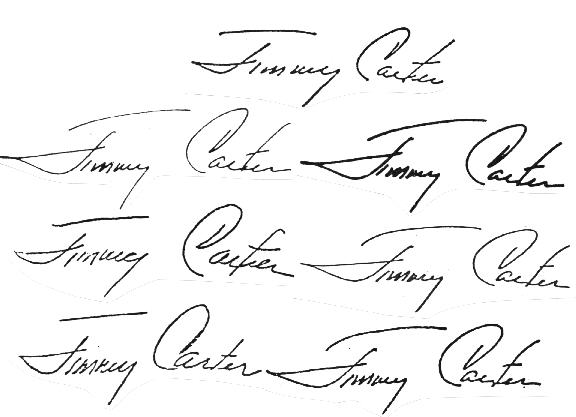 Jimmy Carter
Jimmy Carter Jimmy Carter
Jimmy Carter Jimmy Carter
Jimmy Carter Jimmy Carter